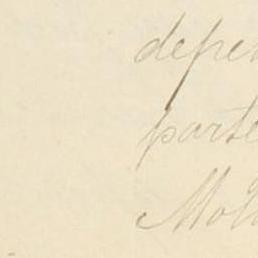 depe
parte
Mol